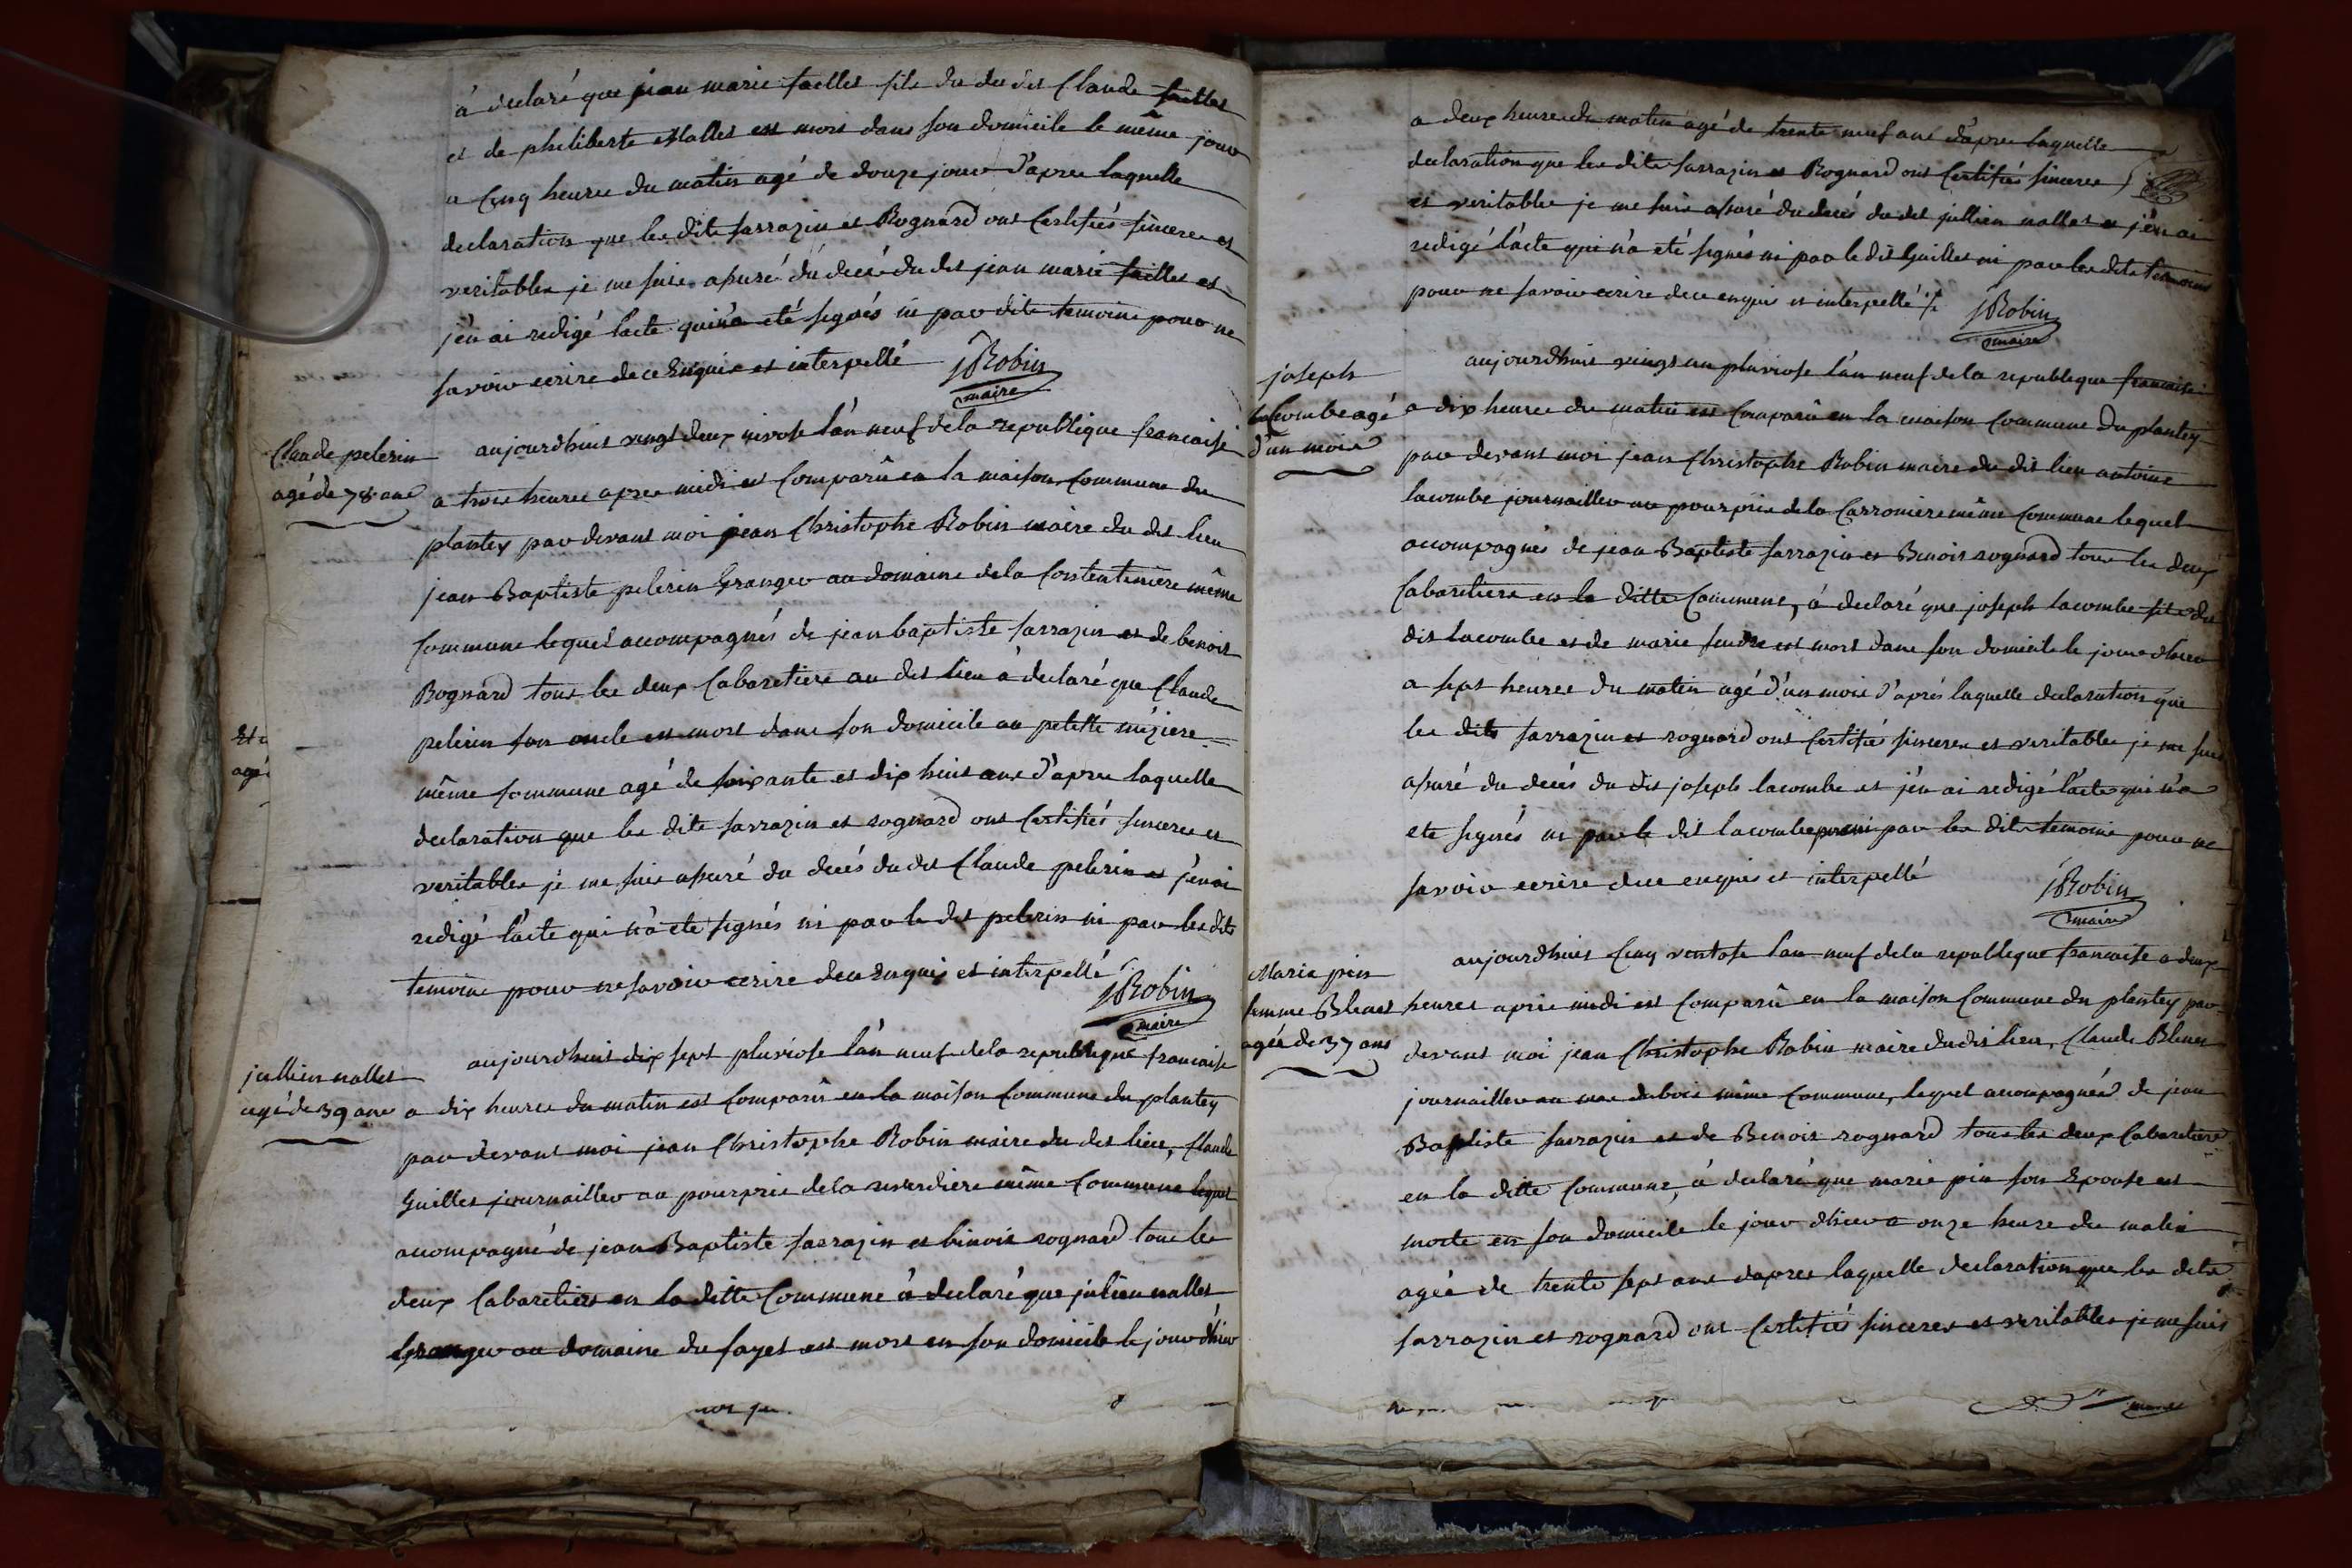 à declaré que jean marie failles fils du du dit Claude failles
et de philiberte nalles est mort dans son domicile le même jour
a Cinq heures du matin agé de douze jours d'apres laquelle
declaration que les dits sarrazin et Rognard ont Certifiés sinceres et
veritables je me suis assuré du decé du dit jean marie failles et
j'en ai redigé l'acte qui n'a eté signés ni par dits temoins pour ne
savoir ecrire de ce Enquis et interpellé JRobin
maire
Claude pelerin
agé de 78 ans
aujourdhuit vingt deux nivose l'an neuf de la republique francaise
a trois heures apres midi est Comparû en la maison Commune du
plantey par devant moi jean Christophe Robin maire du dit lieu
jean Baptiste pelerin Granger au domaine de la Contentinière même
Commune lequel accompagnés de jean baptiste sarrazin et de benoit
Rognard tous les deux Cabaretiers au dit lieu à declaré que Claude
pelerin son oncle est mort dans son domicile au petitte méziere
même Commune agé de soixante et dix huit ans d'apres laquelle
declaration que les dits sarrazin et rognard ont Certifiés sinceres et
veritables je me suis assuré du decés du dit Claude pelerin et j'en ai
redigé l'acte qui n'a eté signés ni par le dit pelerin ni par les dits
temoins pour ne savoir ecrire de ce Enquis et interpellé
JRobin
maire
jullien nalles
agé de 39 ans
aujourdhuit dix sept pluviose l'an neuf de la republique francaise
a dix heures du matin est Comparû en la maison Commune du plantey
par devant moi jean Christophe Robin maire du dit lieu, Claude
Guilles journaillier au pourpris de la verdiere même Commune lequel
accompagné de jean Baptiste sarrazin et binoit rognard tous les
deux Cabaretiers en la ditte Commune à declaré que julien nalles
Granger au domaine du fayet est mort en son domicile le jour d'hier
a deux heures du matin agé de trente neuf ans d'apres laquelle
declaration que les dits sarrazin et Rognard ont Certifiés sinceres
et veritables je me suis assuré du decés du dit jullien nalles et j'en ai
redigé l'acte qui n'a eté signés ni par le dit Guilles ni par les dits temoins
pour ne savoir ecrire de ce enquis et interpellé JRobin
maire
joseph
lacombe agé
d'un mois
aujourdhuit vingt un pluviose l'an neuf de la republique francaise
a dix heures du matin est Comparû en la maison Commune du plantey
par devant moi jean Christophe Robin maire du dit lieu antoine
lacombe journaillier au pourpris de la Carroniere même Commune lequel
accompagnés de jean Baptiste sarrazin et Benoit rognard tous les deux
Cabaretiers en la ditte Commune, à declaré que joseph lacombe fils du
dit lacombe et de marie est mort dans son domicile le jour d'hier
a sept heures du matin agé d'un mois d'aprés laquelle declaration que
les dits sarrazin et rognard ont Certifiés sinceres et veritables je me suis
assuré du decés du dit joseph lacombe et j'en ai redigé l'acte qui n'a
eté signés ni par le dit lacombe ni par les dits temoins pour ne
savoir ecrire de ce enquis et interpellé
JRobin
maire
Marie pin
femme Blanc
agée de 37 ans
aujourdhuit Cinq ventose l'an neuf de la republique francaise a deux
heures apres midi est Comparû en la maison Commune du plantey par
devant moi jean Christophe Robin maire du dit lieu, Claude Blanc
journaillier au mas du bois même Commune, lequel accompagnés de jean
Baptiste sarrazin et de Benoit rognard tous les deux Cabaretiers
en la ditte Commune, à declaré que marie pin son Epouse est
morte en son domicile le jour d'hier a onze heures du matin
agée de trente sept ans d'apres laquelle declaration que les dits
sarrazin et rognard ont Certifiés sinceres et veritables je me suis